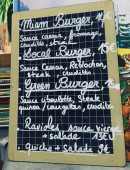 Miam Burger. 14€
Sauce caesar, fromage,
crudités, steak
Local Burger. 15€
Sauce Caesar, Reblochon,
steak, crudités
Green Burger. 15€
Sauce ciboulette, Steak
quinoa/courgettes, crudités
Ravioles sauce vierge
+ salade
Quiche + Salade 9€